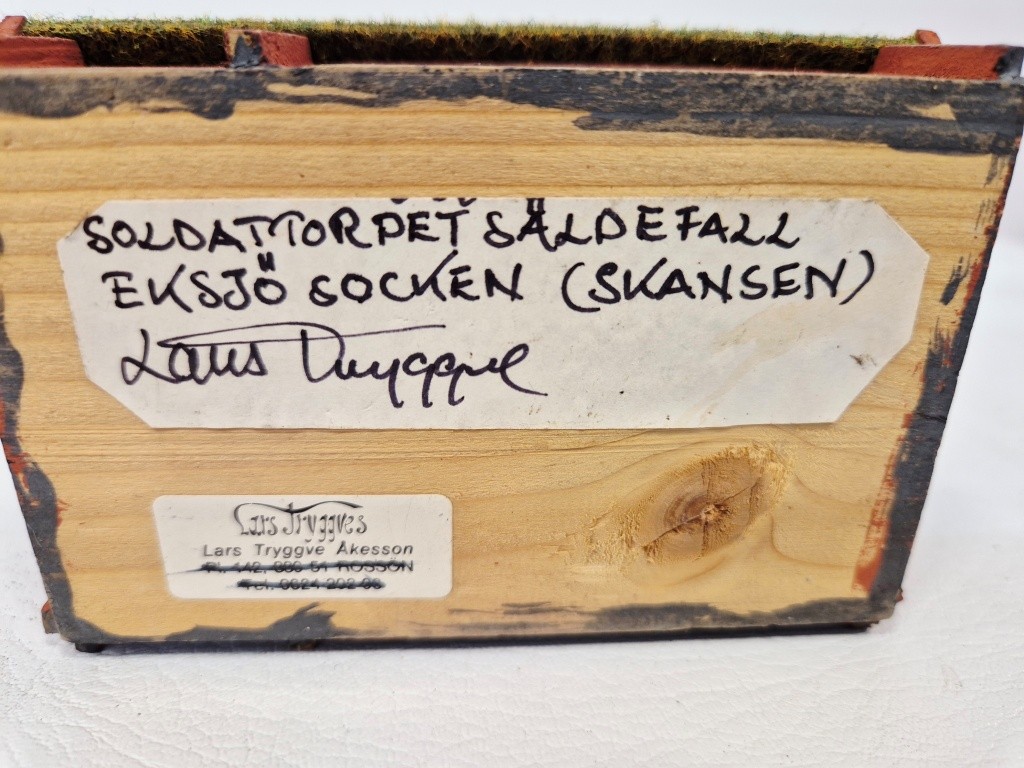 SOLDATTORPET SÄLDEFALL
EKSJÖ SOCKEN (SKANSEN)
Lars Tryggve
Lars Tryggves
Lars Tryggve Åkesson
Pl. 442, 880 51 ROSSÖN
Tel. 0624 202